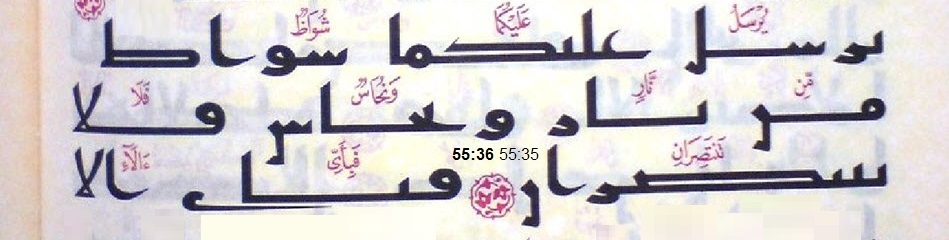 يُرْسَلُ عَلَيْكُمَا شُوَاظٌ
يرسل عليكما شواظ
مِّن نَّارٍ وَنُحَاسٌ فَلَا
من نار ونحاس فلا
55:36 55:35
تَنتَصِرَانِ فَبِأَيِّ ءَالَآءِ
تنتصران فبأي الا